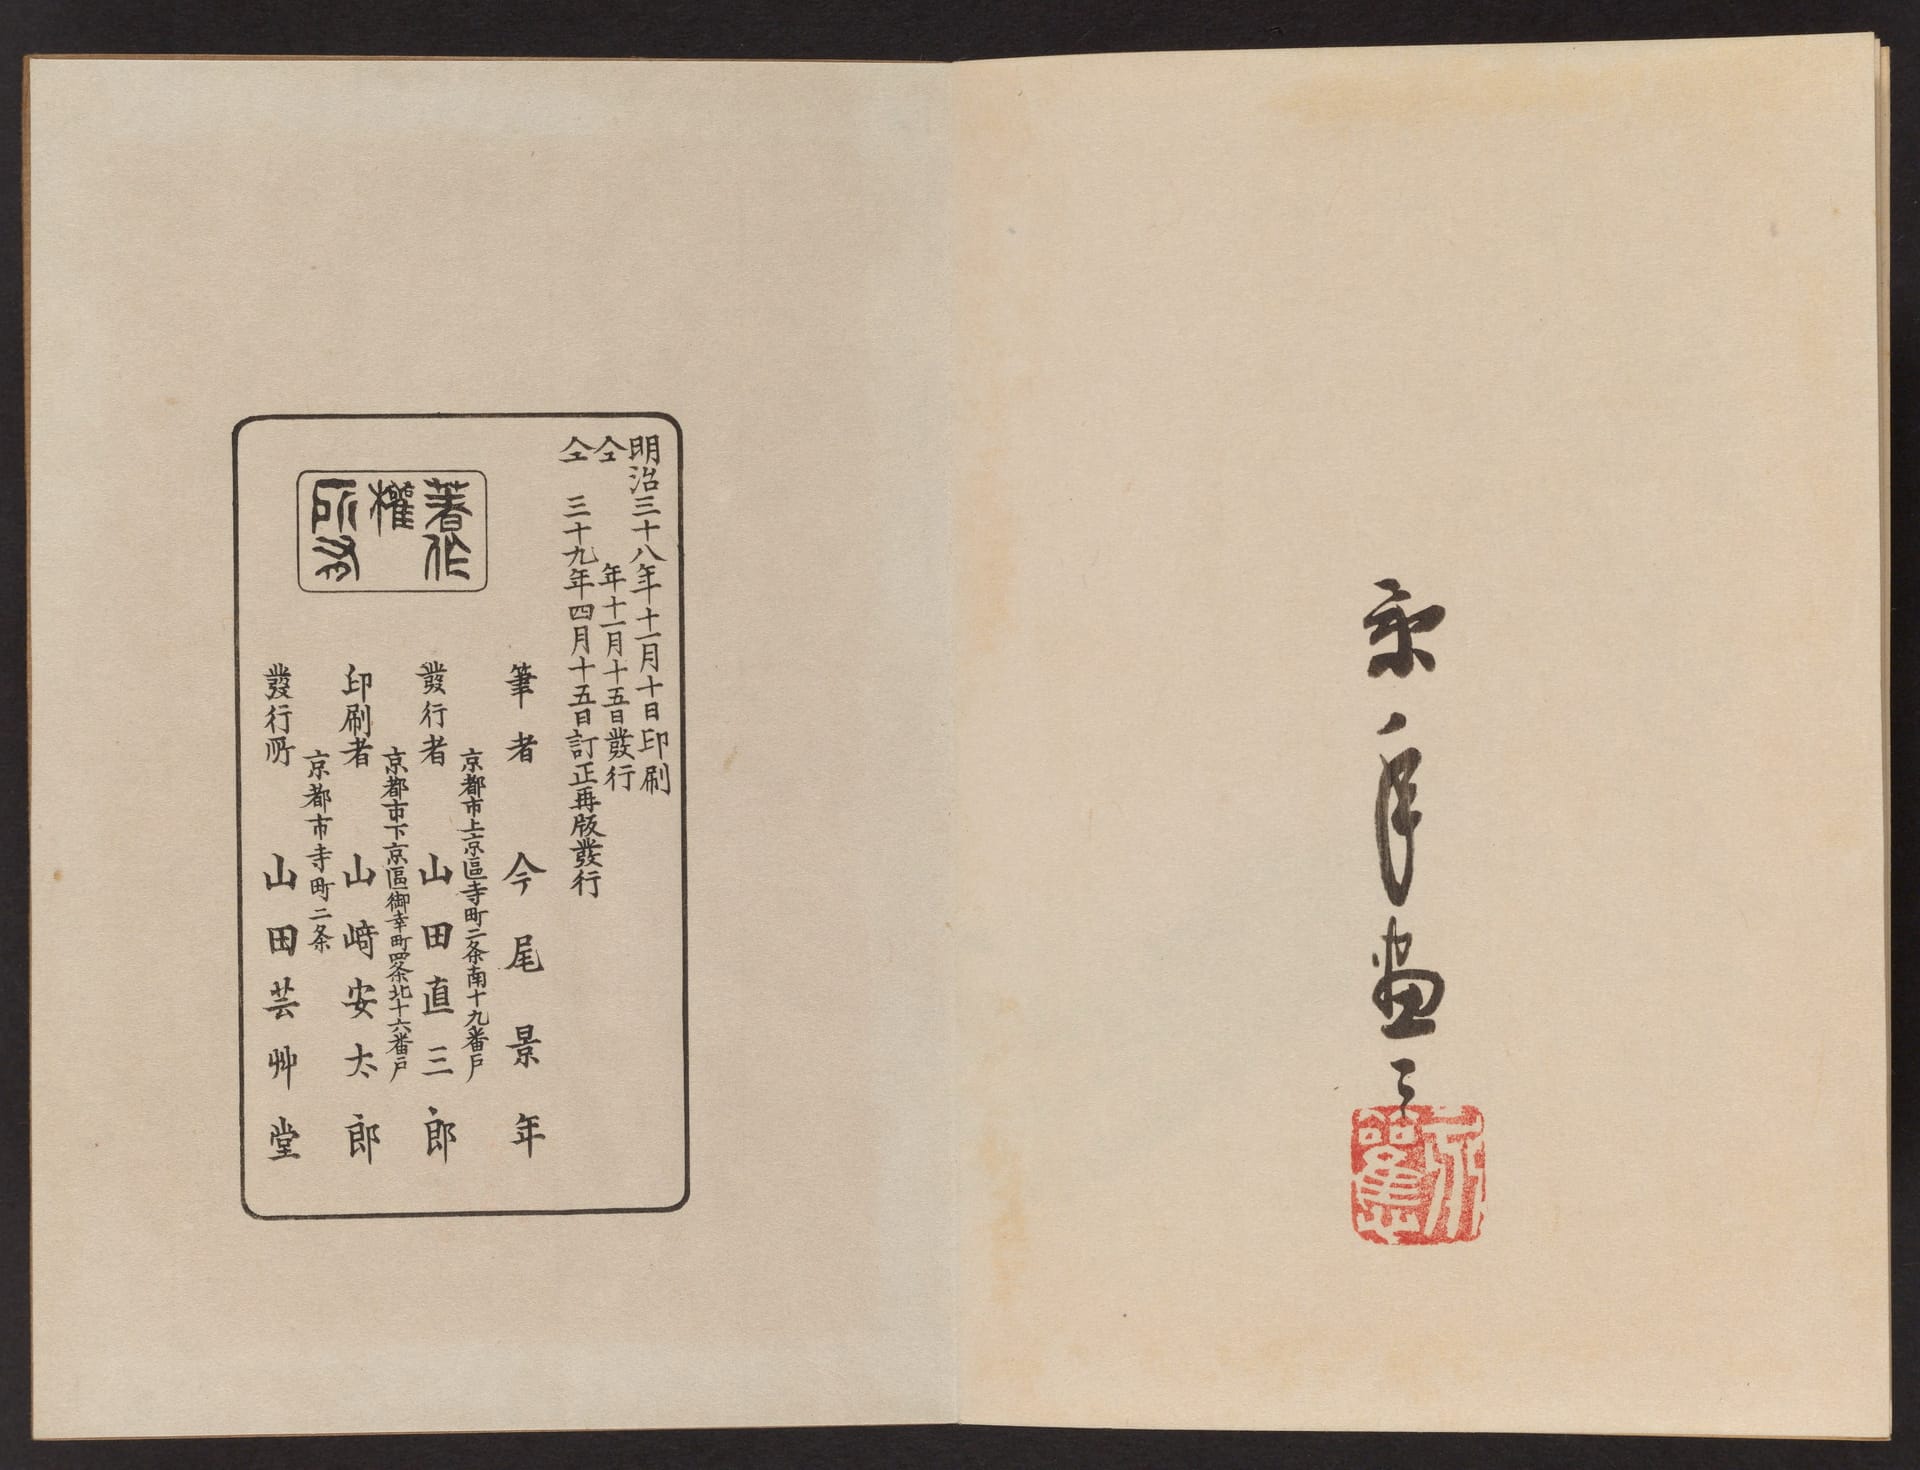 景年畫
明治三十八年十一月十日印刷
仝年十一月十五日發行
仝三十九年四月十五日訂正再版發行
著作
權
所有
筆者 今尾景年
京都市上京區寺町二条南十九番戸
發行者 山田直三郎
京都市下京區御幸町四条北十六番戸
印刷者 山﨑安太郎
京都市寺町二条
發行所 山田芸艸堂